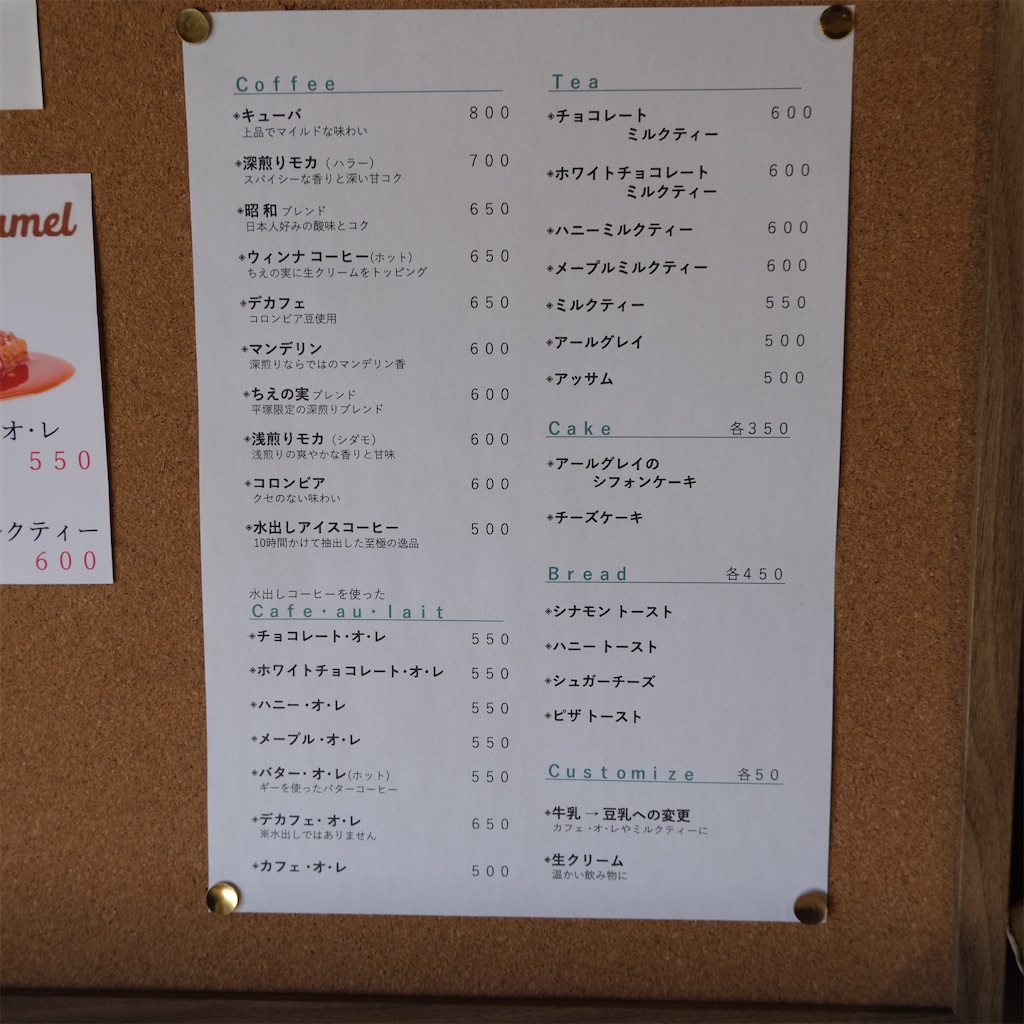 amel
オ・レ
550
クティー
600
Coffee
◈キューバ 800
上品でマイルドな味わい
◈深煎りモカ（ハラー） 700
スパイシーな香りと深い甘コク
◈昭和 ブレンド 650
日本人好みの酸味とコク
◈ウィンナ コーヒー(ホット) 650
ちえの実に生クリームをトッピング
◈デカフェ 650
コロンビア豆使用
◈マンデリン 600
深煎りならではのマンデリン香
◈ちえの実 ブレンド 600
平塚限定の深煎りブレンド
◈浅煎りモカ（シダモ） 600
浅煎りの爽やかな香りと甘味
◈コロンビア 600
クセのない味わい
◈水出しアイスコーヒー 500
10時間かけて抽出した至極の逸品
水出しコーヒーを使った
Cafe・au・lait
◈チョコレート・オ・レ 550
◈ホワイトチョコレート・オ・レ 550
◈ハニー・オ・レ 550
◈メープル・オ・レ 550
◈バター・オ・レ(ホット) 550
ギーを使ったバターコーヒー
◈デカフェ・オ・レ 650
※水出しではありません
◈カフェ・オ・レ 500
Tea
◈チョコレート 600
ミルクティー
◈ホワイトチョコレート 600
ミルクティー
◈ハニーミルクティー 600
◈メープルミルクティー 600
◈ミルクティー 550
◈アールグレイ 500
◈アッサム 500
Cake 各350
◈アールグレイの
シフォンケーキ
◈チーズケーキ
Bread 各450
◈シナモン トースト
◈ハニー トースト
◈シュガーチーズ
◈ピザ トースト
Customize 各50
◈牛乳 → 豆乳への変更
カフェ・オ・レやミルクティーに
◈生クリーム
温かい飲み物に